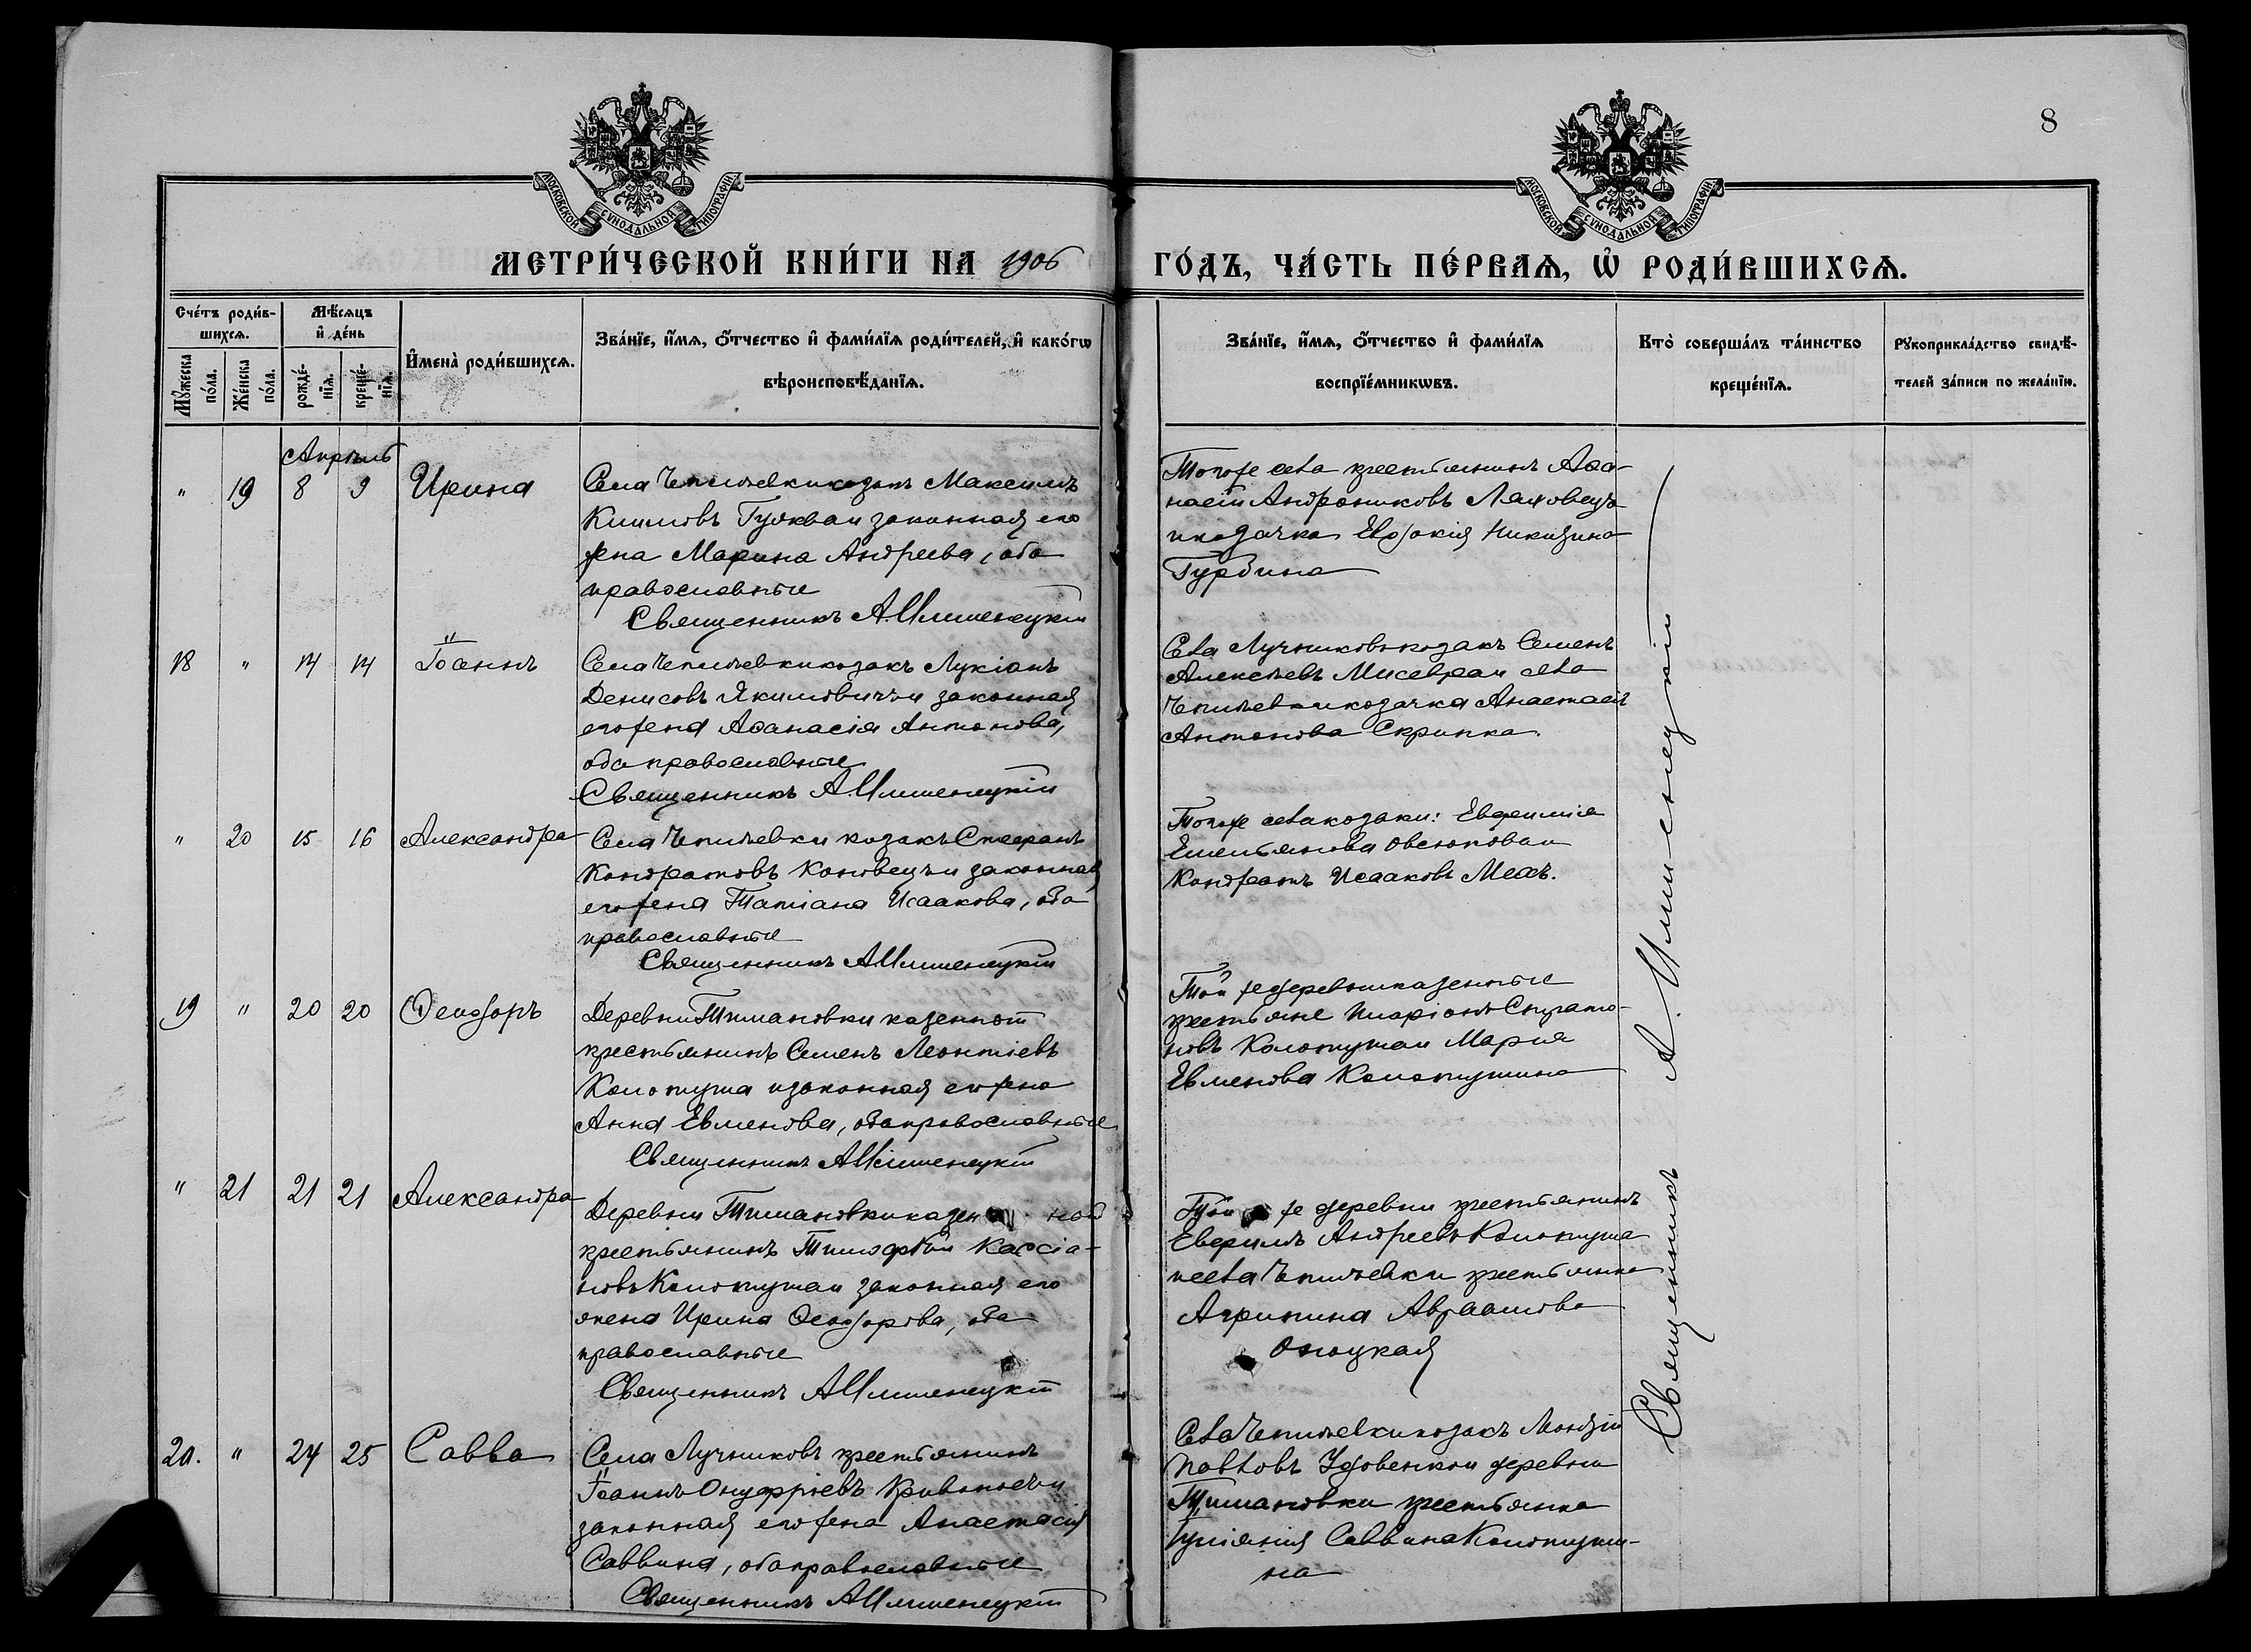 8
МОСКОВСКОЙ СѴНОДАЛЬНОЙ ТИПОГРАФІИ
МОСКОВСКОЙ СѴНОДАЛЬНОЙ ТИПОГРАФІИ
МЕТРИ́ЧЕСКОЙ КНИ́ГИ НА 1906
ГО́ДЪ, ЧА́СТЬ ПЕ́РВАѦ, Ѡ҆ РОДИ́ВШИХСѦ.
Сче́тъ роди́в-
шихсѧ.
Мꙋ́жеска по́ла.
Же́нска по́ла.
Мѣ́сѧцъ
и҆ де́нь
рожде́-
нїѧ.
креще́-
нїѧ.
И҆мена̀ роди́вшихсѧ.
Зва́нїе, и҆́мѧ, ѻ҆́тчество и҆ фами́лїѧ роди́телей, и҆ како́гѡ
вѣроисповѣ́данїѧ.
Зва́нїе, и҆́мѧ, ѻ҆́тчество и҆ фами́лїѧ
воспрїе́мникѡвъ.
Кто̀ соверша́лъ та́инство
креще́нїѧ.
Рꙋкоприкла́дство свидѣ́-
телей за́писи по жела́нїю.
Апрѣль
" 19 8 9 Ирина
Села Чепилевки козакъ Максимъ
Климовъ и законная его
жена Марина Андреева, оба
православные
Священникъ А. Илшенецкій
Того же села крестьянинъ Аѳа-
насій Андрониковъ Ляховецъ
и козачка Евдокія Никитина
Турбина
18 " 14 14 Іоаннъ
Села Чепилевки козакъ Лукіанъ
Денисовъ Якимовичъ и законная
его жена Аѳанасія Антонова,
оба православные
Священникъ А. Илшенецкій
Села Лучниковъ козакъ Семенъ
Алексѣевъ Мисевра и села
Чепилевки козачка Анастасія
Антонова Скрипка.
" 20 15 16 Александра
Села Чепилевки козакъ Стефанъ
Кондратовъ Коновецъ и законная
его жена Татіана Исаакова, оба
православные
Священникъ А. Илшенецкій
Того же села козаки: Евфимія
Емельянова Овсюкова и
Кондратъ Исааковъ Мехъ.
19 " 20 20 Ѳеодоръ
Деревни Тишановки казенной
крестьянинъ Семенъ Леонтіевъ
Колотуша и законная его жена
Анна Евменова, оба православные
Священникъ А. Илшенецкій
Той же деревни казенные
крестьяне Иларіонъ Стратo-
новъ Колотуша и Марія
Евменова Колотушина
" 21 21 21 Александра
Деревни Тишановки казен ной
крестьянинъ Тимофѣй Кассіа-
новъ Колотуша и законная его
жена Ирина Ѳеодорова, оба
православные
Священникъ А. Илшенецкій
Той же деревни крестьянинъ
Андреевъ Колотуша
и села Чепилевки крестьянка
Агрипина Авраамова
Оноцкая
20. " 24 25 Савва
Села Лучниковъ крестьянинъ
Іоаннъ Онуфріевъ и
законная его жена Анастасія
Саввина, оба православные
Священникъ А. Илшенецкій
Села Чепилевки козакъ
Павловъ Удовенко и деревни
Тишановки крестьянка
Іуліанія Саввина Колотуши-
на
Священникъ А. Илшенецкій